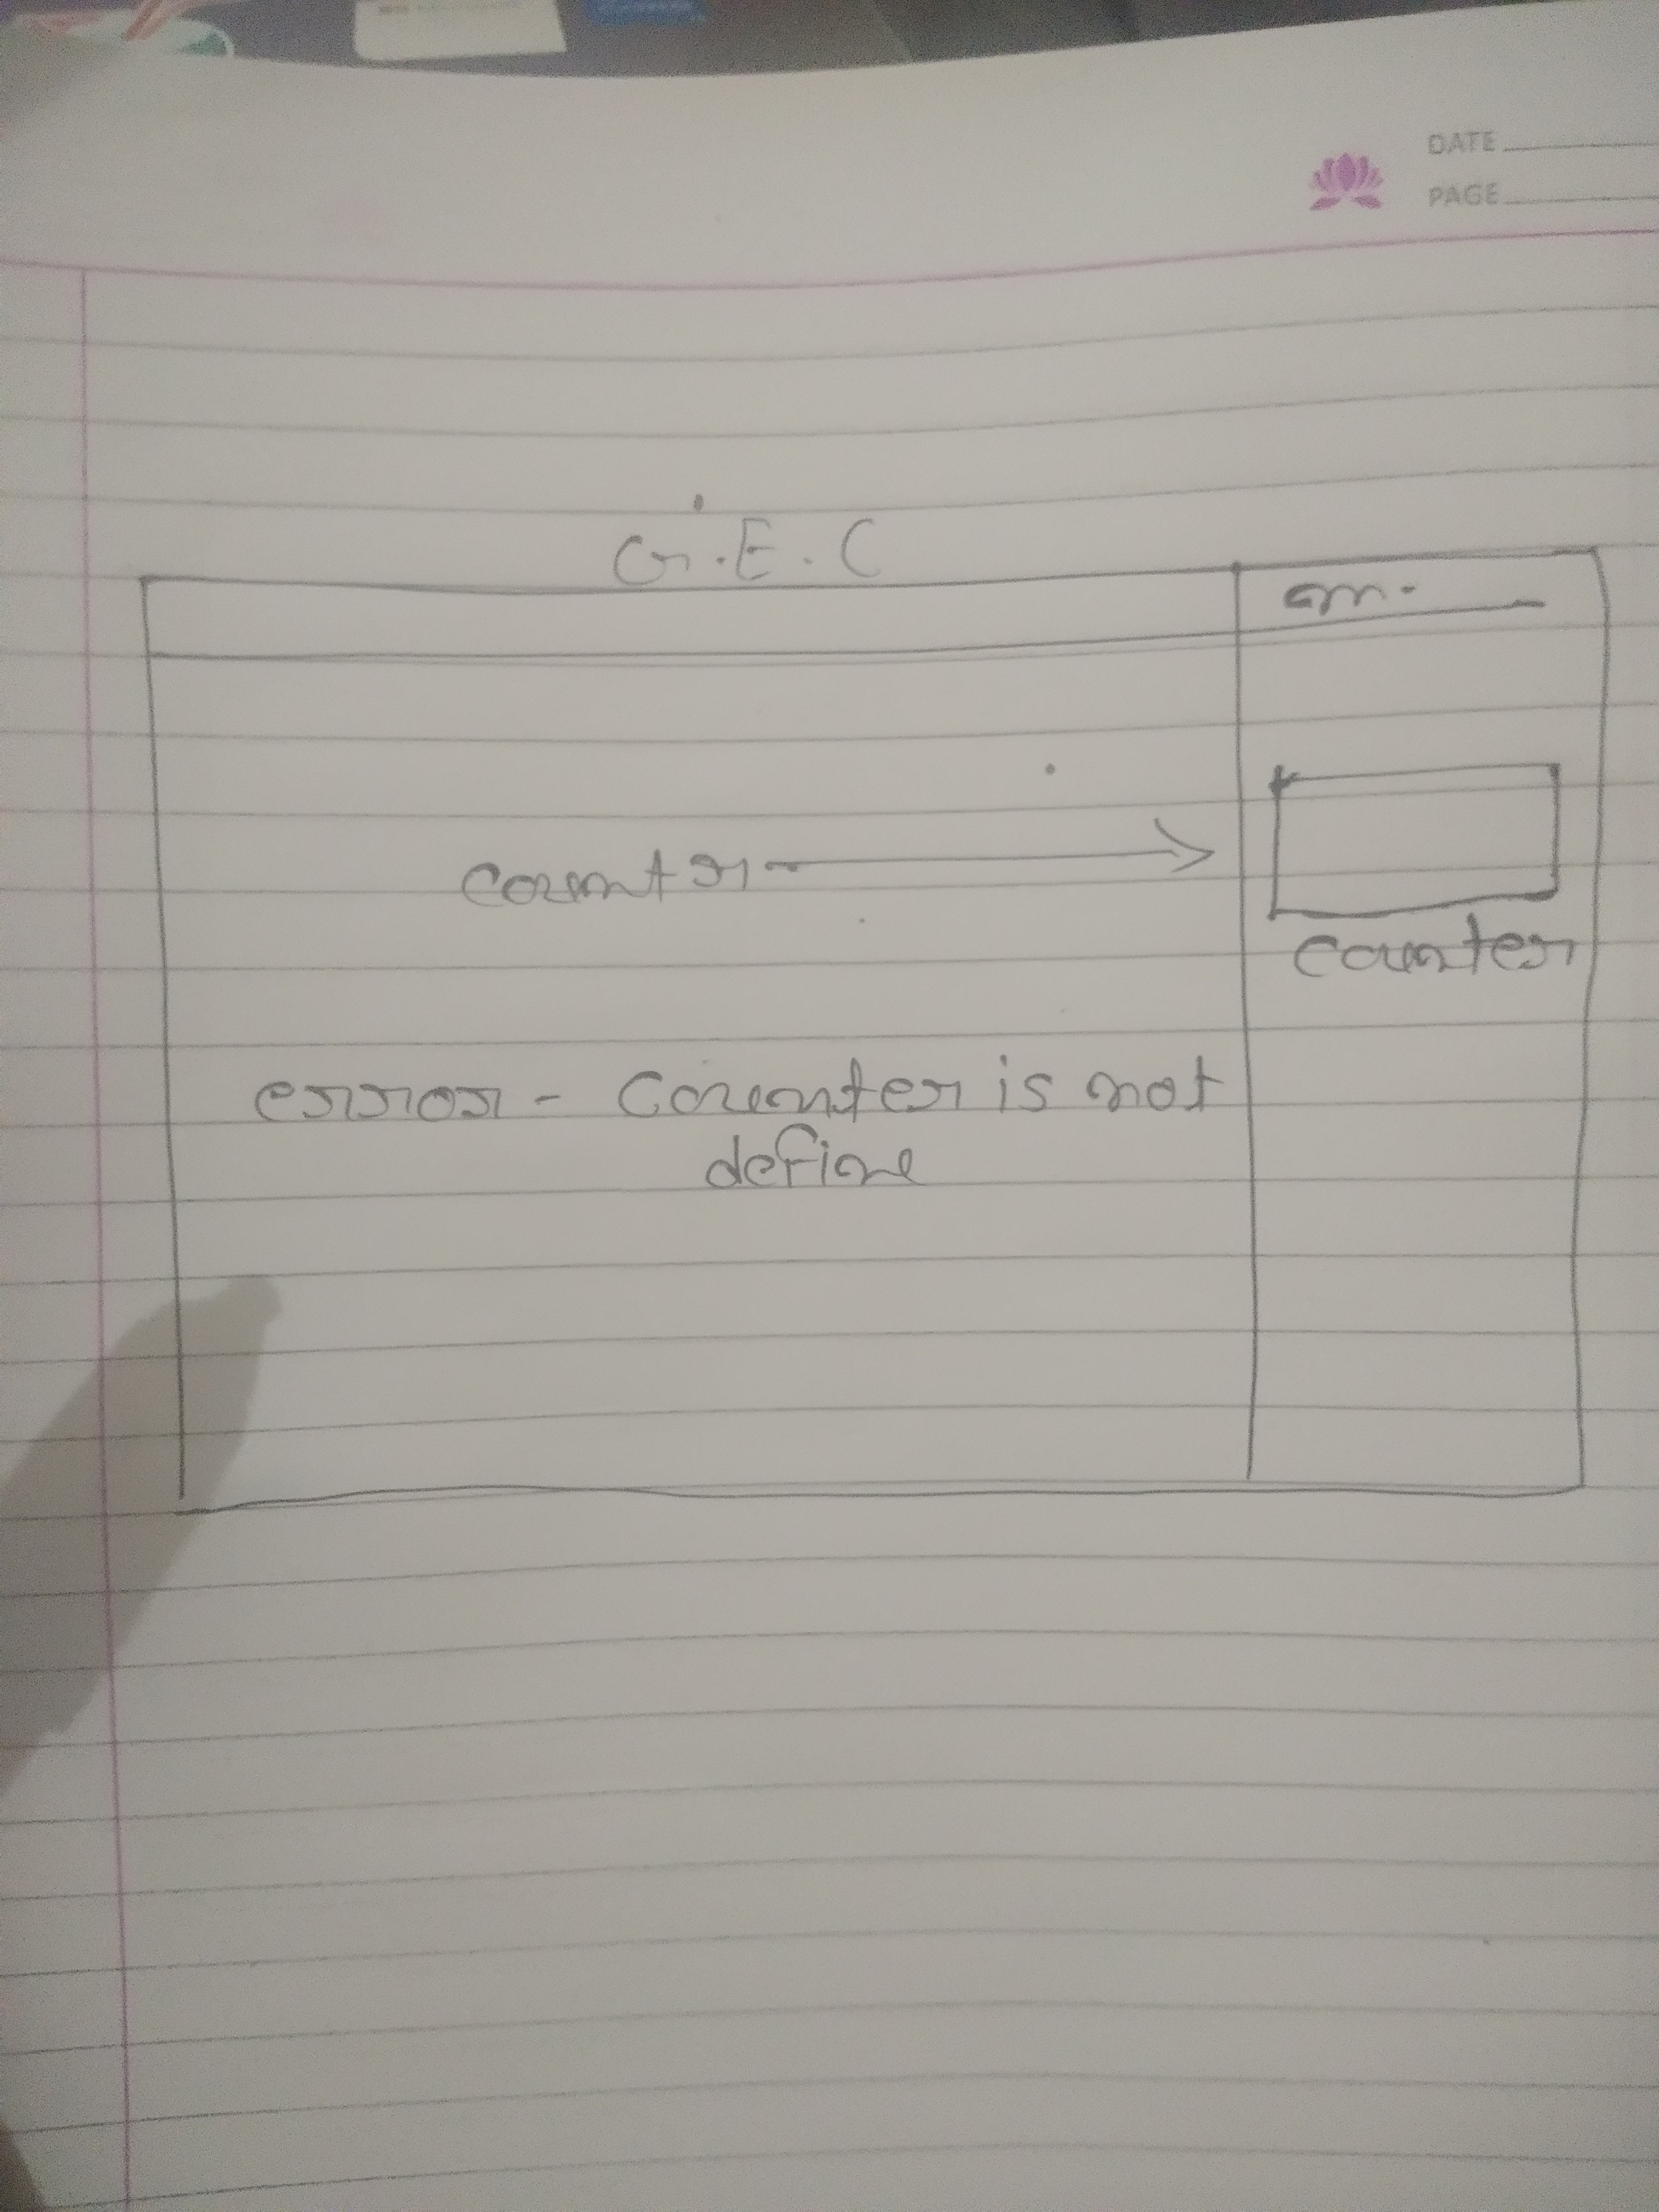 DATE
PAGE
G.E.C
m.
countr
counter
error - Counter is not
define